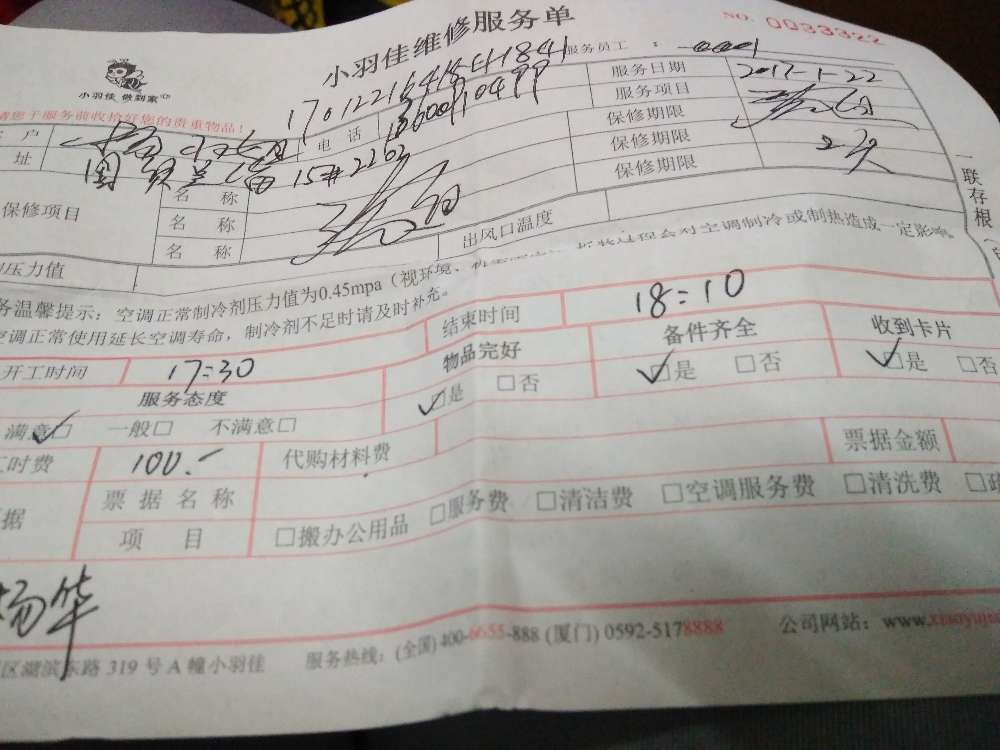 小羽佳维修服务单
NO. 0033322
小羽佳 做到家
服务员工 : 0001
请您于服务前收拾好您的贵重物品!
户
电话
服务日期 2017-1-22
址
15#2202
服务项目
保修期限
保修期限
保修期限
保修项目
名 称
名 称
名 称
压力值
出风口温度
一联存根
务温馨提示:空调正常制冷剂压力值为0.45mpa(视环境、
会对空调制冷或制热造成一定影响。
空调正常使用延长空调寿命,制冷剂不足时请及时补充。
开工时间 17:30
结束时间 18:10
服务态度
物品完好
备件齐全
收到卡片
满意□ 一般□ 不满意□
□是 □否
□是 □否
□是 □否
工时费 100.-
代购材料费
票据金额
据
票据名称
项 目
□搬办公用品 □服务费 □清洁费 □空调服务费 □清洗费
杨华
区湖滨东路 319 号 A 幢小羽佳
服务热线:(全国) 400-8655-888 (厦门) 0592-5178888
公司网站:www.xiaoyujia